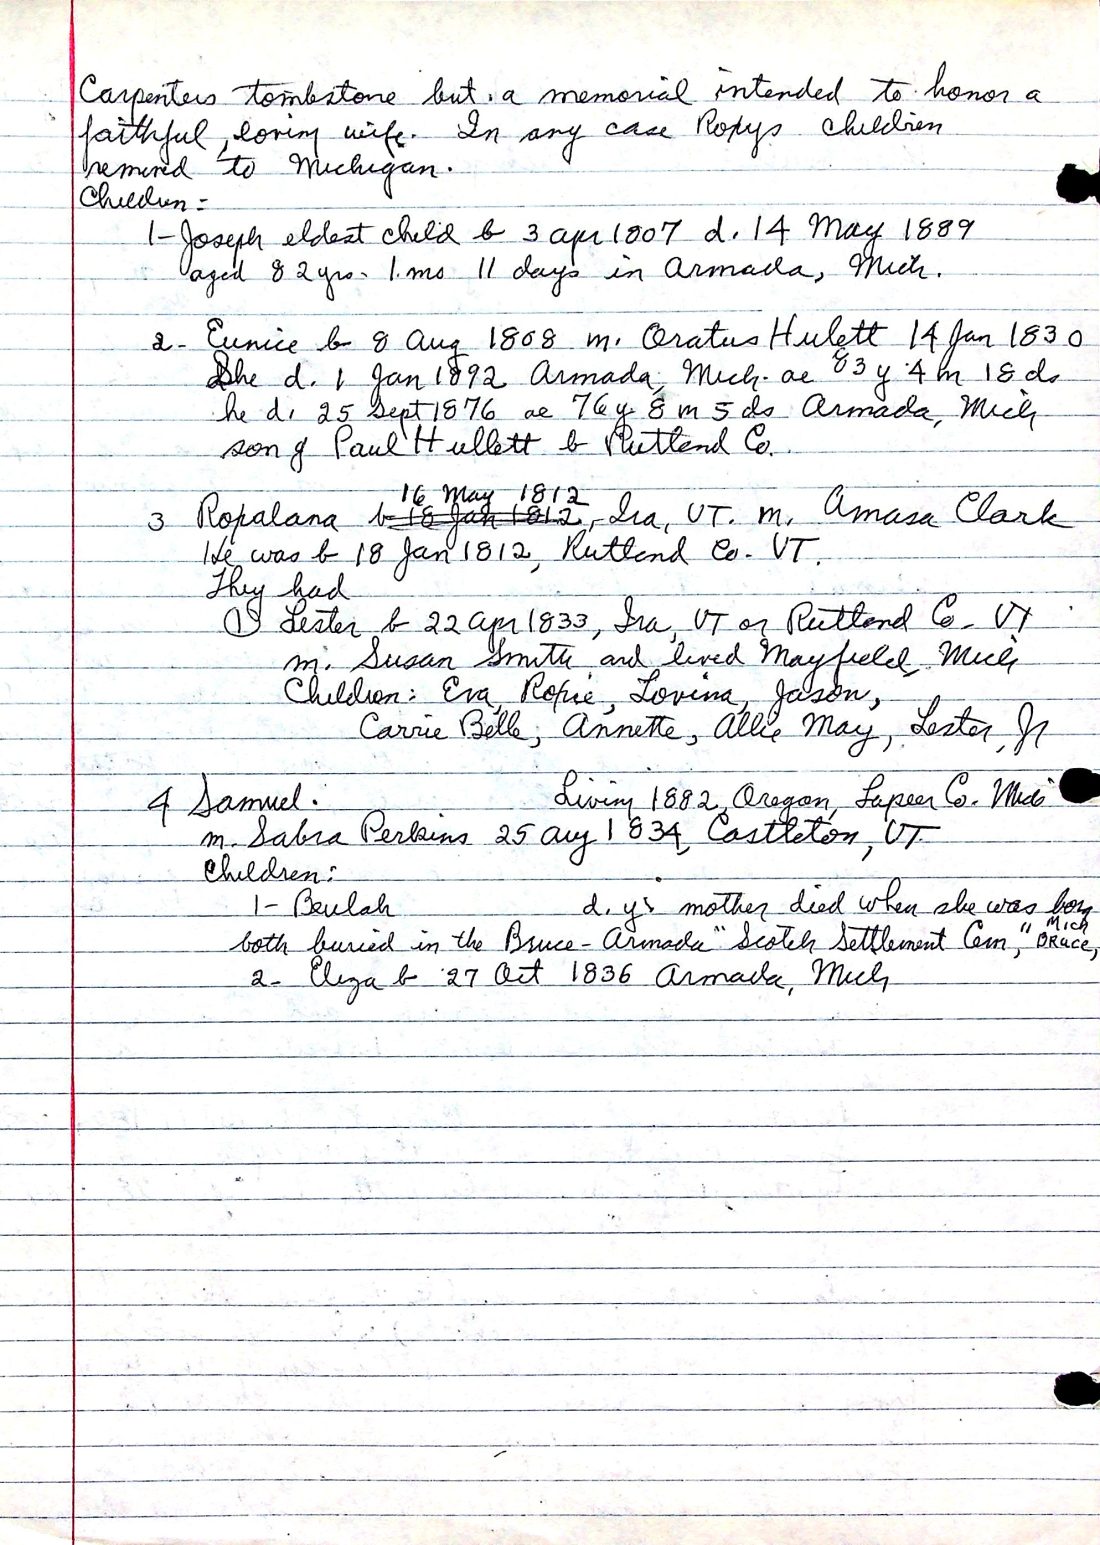 Carpenters tombstone but a memorial intended to honor a
faithful, loving wife. In any case Roxys children
removed to Michigan.
Children:
1- Joseph eldest child b 3 apr 1807 d. 14 May 1889
aged 82 yrs- 1 mo 11 days in Armada, Mich.
2- Eunice b 8 Aug 1808 m. Oratus Hulett 14 Jan 1830
She d. 1 Jan 1892 Armada, Mich. ae 83 y 4 m 18 ds
he d. 25 Sept 1876 ae 76 y 8 m 5 ds Armada, Mich
son of Paul Hullett b Rutland Co.
16 May 1812
3 Roxalana b 18 Jan 1812, Ira, VT. m. Amasa Clark
He was b 18 Jan 1812, Rutland Co. VT.
They had
① Lester b 22 apr 1833, Ira, VT or Rutland Co. VT
m. Susan Smith and lived Mayfield, Mich
Children: Eva, Roxie, Lovina, Jason,
Carrie Belle, Annette, Allie May, Lester, Jr
4 Samuel. Living 1882, Oregon, Lapeer Co. Mich
m. Sabra Perkins 25 aug 1834, Castleton, VT
Children:
1- Beulah d. y. mother died when she was born
both buried in the Bruce-Armada "Scotch Settlement Cem," Bruce,
Mich
2- Eliza b 27 Oct 1836 Armada, Mich